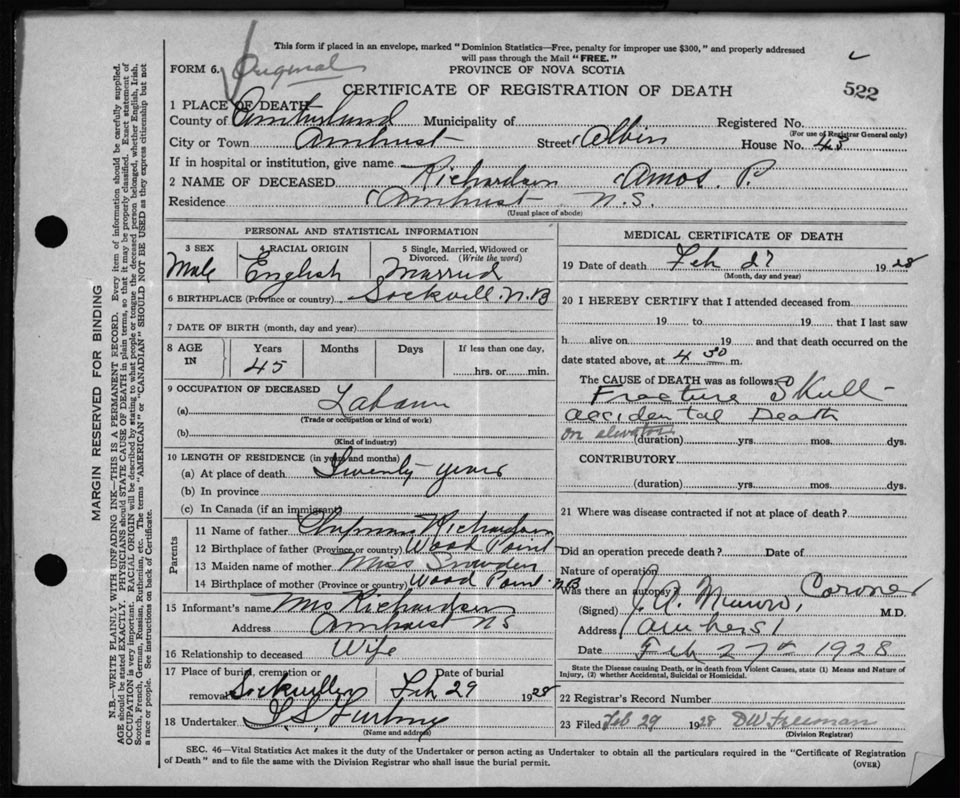 This form if placed in an envelope, marked "Dominion Statistics—Free, penalty for improper use $300," and properly addressed
will pass through the Mail "FREE."
FORM 6. Original
PROVINCE OF NOVA SCOTIA
CERTIFICATE OF REGISTRATION OF DEATH
522
1 PLACE OF DEATH
County of Cumberland Municipality of Registered No.
(For use of Registrar General only)
City or Town Amherst Street Albion House No. 43
If in hospital or institution, give name
2 NAME OF DECEASED Richardson Amos. P.
Residence Amherst N.S.
(Usual place of abode)
PERSONAL AND STATISTICAL INFORMATION
3 SEX 4 RACIAL ORIGIN 5 Single, Married, Widowed or Divorced. (Write the word)
Male English Married
6 BIRTHPLACE (Province or country) Sackville N.B
7 DATE OF BIRTH (month, day and year)
8 AGE IN Years Months Days If less than one day,
45 hrs. or min.
9 OCCUPATION OF DECEASED
(a) Laborer
(Trade or occupation or kind of work)
(b)
(Kind of industry)
10 LENGTH OF RESIDENCE (in years and months)
(a) At place of death Twenty years
(b) In province
(c) In Canada (if an immigrant)
Parents
11 Name of father Richardson
12 Birthplace of father (Province or country) Wood Point
13 Maiden name of mother Miss Snowden
14 Birthplace of mother (Province or country) Wood Point N.B
15 Informant's name Mrs Richardson
Address Amherst NS
16 Relationship to deceased Wife
17 Place of burial, cremation or Date of burial
removal Sackville Feb 29 1928
18 Undertaker
(Name and address)
MEDICAL CERTIFICATE OF DEATH
19 Date of death Feb 27 1928
(Month, day and year)
20 I HEREBY CERTIFY that I attended deceased from
19 to 19 that I last saw
h alive on 19 and that death occurred on the
date stated above, at 4 30 m.
The CAUSE OF DEATH was as follows:
Fracture Skull
accidental Death
on elevator (duration) yrs. mos. dys.
CONTRIBUTORY
(duration) yrs. mos. dys.
21 Where was disease contracted if not at place of death?
Did an operation precede death? Date of
Nature of operation
Was there an autopsy?
(Signed) Coroner M.D.
Address Amherst
Date Feb 27th 1928
State the Disease causing Death, or in death from Violent Causes, state (1) Means and Nature of
Injury, (2) whether Accidental, Suicidal or Homicidal.
22 Registrar's Record Number
23 Filed Feb 29 1928 DW Freeman
(Division Registrar)
SEC. 46—Vital Statistics Act makes it the duty of the Undertaker or person acting as Undertaker to obtain all the particulars required in the "Certificate of Registration
of Death" and to file the same with the Division Registrar who shall issue the burial permit.
(OVER)
MARGIN RESERVED FOR BINDING
N.B.—WRITE PLAINLY WITH UNFADING INK—THIS IS A PERMANENT RECORD. Every item of information should be carefully supplied.
AGE should be stated EXACTLY. PHYSICIANS should STATE CAUSE OF DEATH in plain terms, so that it may be properly classified. Exact statement of
OCCUPATION is very important. RACIAL ORIGIN will be described by stating to what people or tongue the deceased person belonged, whether English, Irish,
Scotch, French, German, Russian, Ruthenian, etc. The terms "AMERICAN" or "CANADIAN" SHOULD NOT BE USED as they express citizenship but not
a race or people. See instructions on back of Certificate.